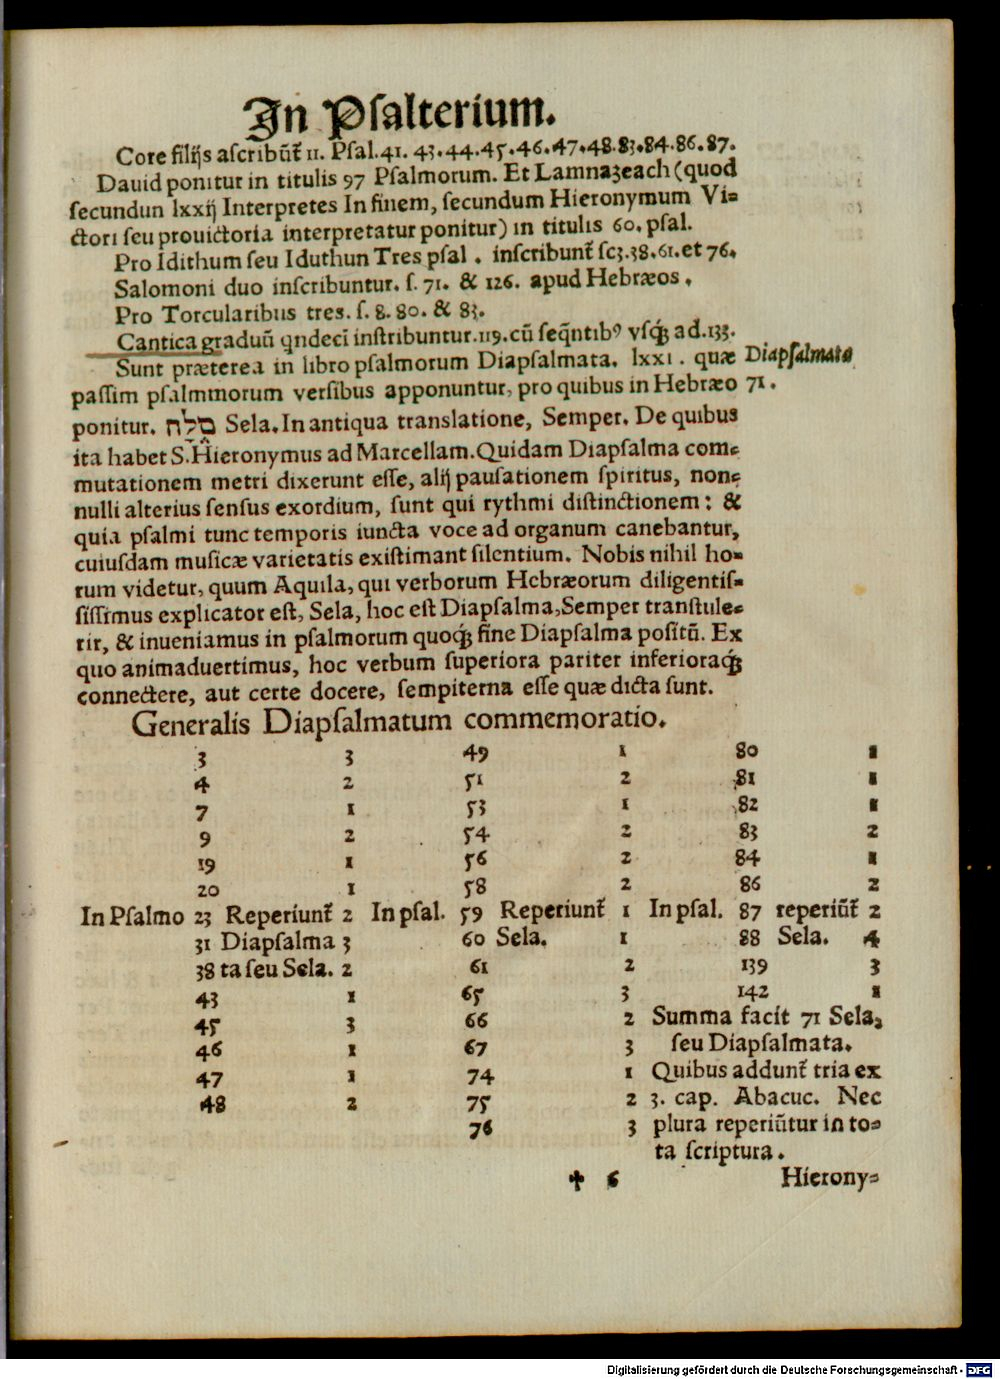 In Pſalterium.
Core filijs aſcribūt̃ 11. Pſal.41. 43.44.45.46.47.48.83.84.86.87.
Dauid ponitur in titulis 97 Pſalmorum. Et Lamnaʒeach (quod
ſecundun lxxij Interpretes In finem, ſecundum Hieronymum Vi-
ctori ſeu prouictoria interpretatur ponitur) in titulis 60. pſal.
Pro Idithum ſeu Iduthun Tres pſal . inſcribunt̃ ſcʒ.38.61.et 76.
Salomoni duo inſcribuntur. ſ. 71. & 126. apud Hebræos .
Pro Torcularibus tres. ſ. 8. 80. & 83.
Cantica graduū qndecī inſtribuntur.119.cū ſeq̃ntibꝰ vſqꝫ ad.133.
Sunt præterea in libro pſalmorum Diapſalmata. lxxi . quæ Diapſalmata
paſſim pſalmmorum verſibus apponuntur, pro quibus in Hebræo 71.
ponitur. סלה Sela. In antiqua translatione, Semper. De quibus
ita habet S. Hieronymus ad Marcellam. Quidam Diapſalma com-
mutationem metri dixerunt eſſe, alij pauſationem ſpiritus, non-
nulli alterius ſenſus exordium, ſunt qui rythmi diſtinctionem: &
quia pſalmi tunc temporis iuncta voce ad organum canebantur,
cuiuſdam muſicæ varietatis exiſtimant ſilentium. Nobis nihil ho-
rum videtur, quum Aquila, qui verborum Hebræorum diligentiſ-
ſiſſimus explicator eſt, Sela, hoc eſt Diapſalma, Semper tranſtule-
rir, & inueniamus in pſalmorum quoqꝫ fine Diapſalma poſitū. Ex
quo animaduertimus, hoc verbum ſuperiora pariter inferioraqꝫ
connectere, aut certe docere, ſempiterna eſſe quæ dicta ſunt.
Generalis Diapſalmatum commemoratio.
3 3 49 1 80 1
4 2 51 2 81 1
7 1 53 1 82 1
9 2 54 2 83 2
19 1 56 2 84 1
20 1 58 2 86 2
In Pſalmo 23 Reperiunt̃ 2 In pſal. 59 Reperiunt̃ 1 In pſal. 87 reperiūt̃ 2
31 Diapſalma 3 60 Sela. 1 88 Sela. 4
38 ta ſeu Sela. 2 61 2 139 3
43 1 65 3 142 1
45 3 66 2 Summa facit 71 Sela,
46 1 67 3 ſeu Diapſalmata.
47 1 74 1 Quibus addunt̃ tria ex
48 2 75 2 3. cap. Abacuc. Nec
76 3 plura reperiūtur in to-
ta ſcriptura.
✝ 6 Hierony-
Digitalisierung gefördert durch die Deutsche Forschungsgemeinschaft - DFG